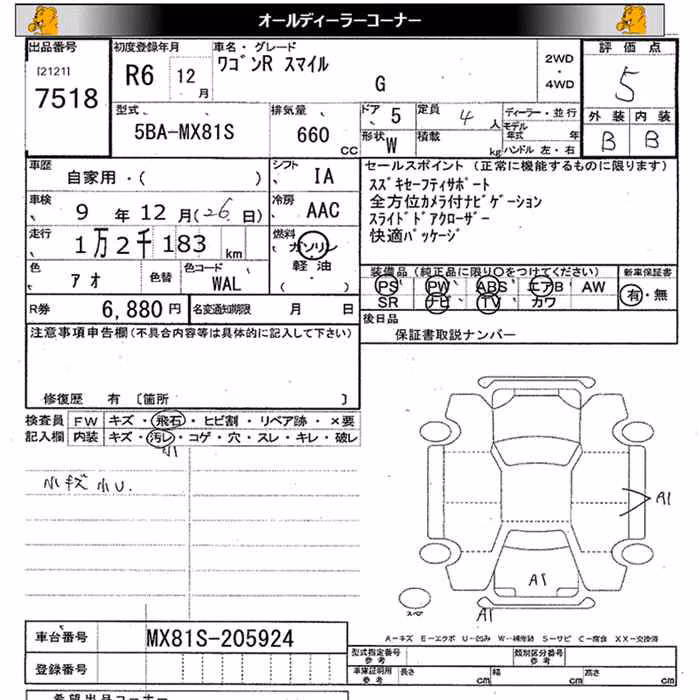 オールディーラーコーナー
出品番号
[2121]
7518
初度登録年月
R6 12 月
車名・グレード
ワゴンR スマイル
G
2WD
・
4WD
評価点
5
外装 内装
B B
型式
5BA-MX81S
排気量
660 CC
ドア 5
形状 W
定員 4 人
積載 kg
ディーラー・並行
モデル年式 年
ハンドル 左・右
車歴
自家用・( )
シフト IA
車検
9 年 12 月(26 日)
冷房 AAC
走行
1万2千183 km
燃料
ガソリン
軽油
( )
色
アオ
色替
色コード
WAL
セールスポイント (正常に機能するものに限ります)
スズキセーフティサポート
全方位カメラ付ナビゲーション
スライドドアクローザー
快適パッケージ
装備品 (純正品に限り○をつけてください)
PS PW ABS エアB AW
SR ナビ TV カワ
新車保証書
有・無
R券 6,880 円
名変通知期限 月 日
後日品
保証書取説ナンバー
注意事項申告欄 (不具合内容等は具体的に記入して下さい)
修復歴 有 [箇所 ]
検査員
記入欄
FW キズ・飛石・ヒビ割・リペア跡・×要
内装 キズ・汚レ・コゲ・穴・スレ・キレ・破レ
小
小キズ小U.
A1
A1
A1
スペア
A−キズ E−エクボ U−凹み W−補修跡 S−サビ C−腐食 XX−交換済
車台番号 MX81S-205924
登録番号
型式指定番号
参考
類別区分番号
参考
車庫証明用
参考
長さ cm
幅 cm
高さ cm
希望出品コーナー